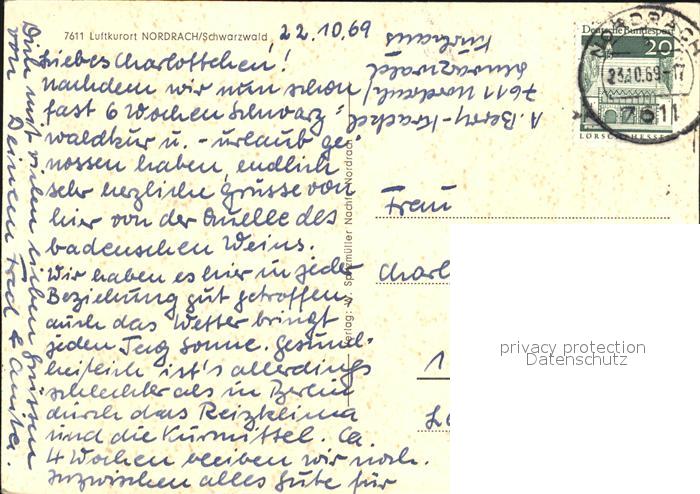 7611 Luftkurort NORDRACH/Schwarzwald
22.10.69
Liebes Charlottchen!
nachdem wir nun schon
fast 6 Wochen Schwarz=
waldkur u. -urlaub ge-
nossen haben, endlich
sehr herzliche Grüsse von
hier von der Quelle des
badenschen Weins.
Wir haben es hier in jeder
Beziehung gut getroffen,
auch das Wetter bringt
jeden Tag Sonne. Gesund-
heitlich ist's allerdings
schlechter als in Berlin
durch das Reizklima
und die Kurmittel. Ca.
4 Wochen bleiben wir noch.
Inzwischen alles Gute für
Dich mit vielen lieben Grüssen
von Deinem Fred & Anita.
Verlag: W. Spitzmüller Nachf. Nordrach
A. Berry-Krachel
7611 Nordrach/
Schwarzwald
Kurhaus
Deutsche Bundespost
20
LORSCH/HESSEN
NORDRACH
23.10.69-17
7611
Frau
Charl
1
privacy protection
Datenschutz